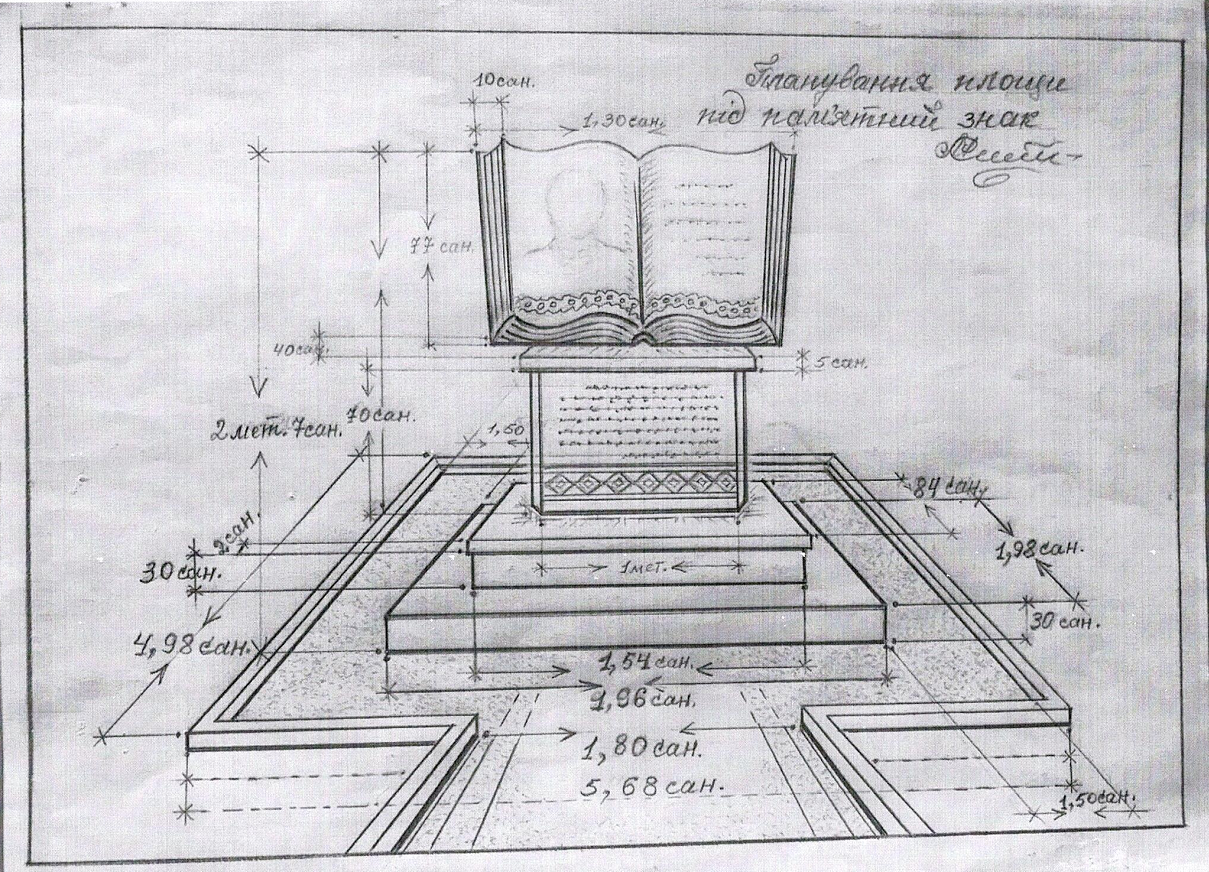 Планування площи
під пам'ятний знак
10 сан.
1,30 сан.
77 сан.
40 сан.
5 сан.
2 мет. 7 сан.
70 сан.
1,50
84 сан.
2 сан.
1,98 сан.
30 сан.
1 мет.
30 сан.
4,98 сан.
1,54 сан.
1,96 сан.
1,80 сан.
5,68 сан.
1,50 сан.